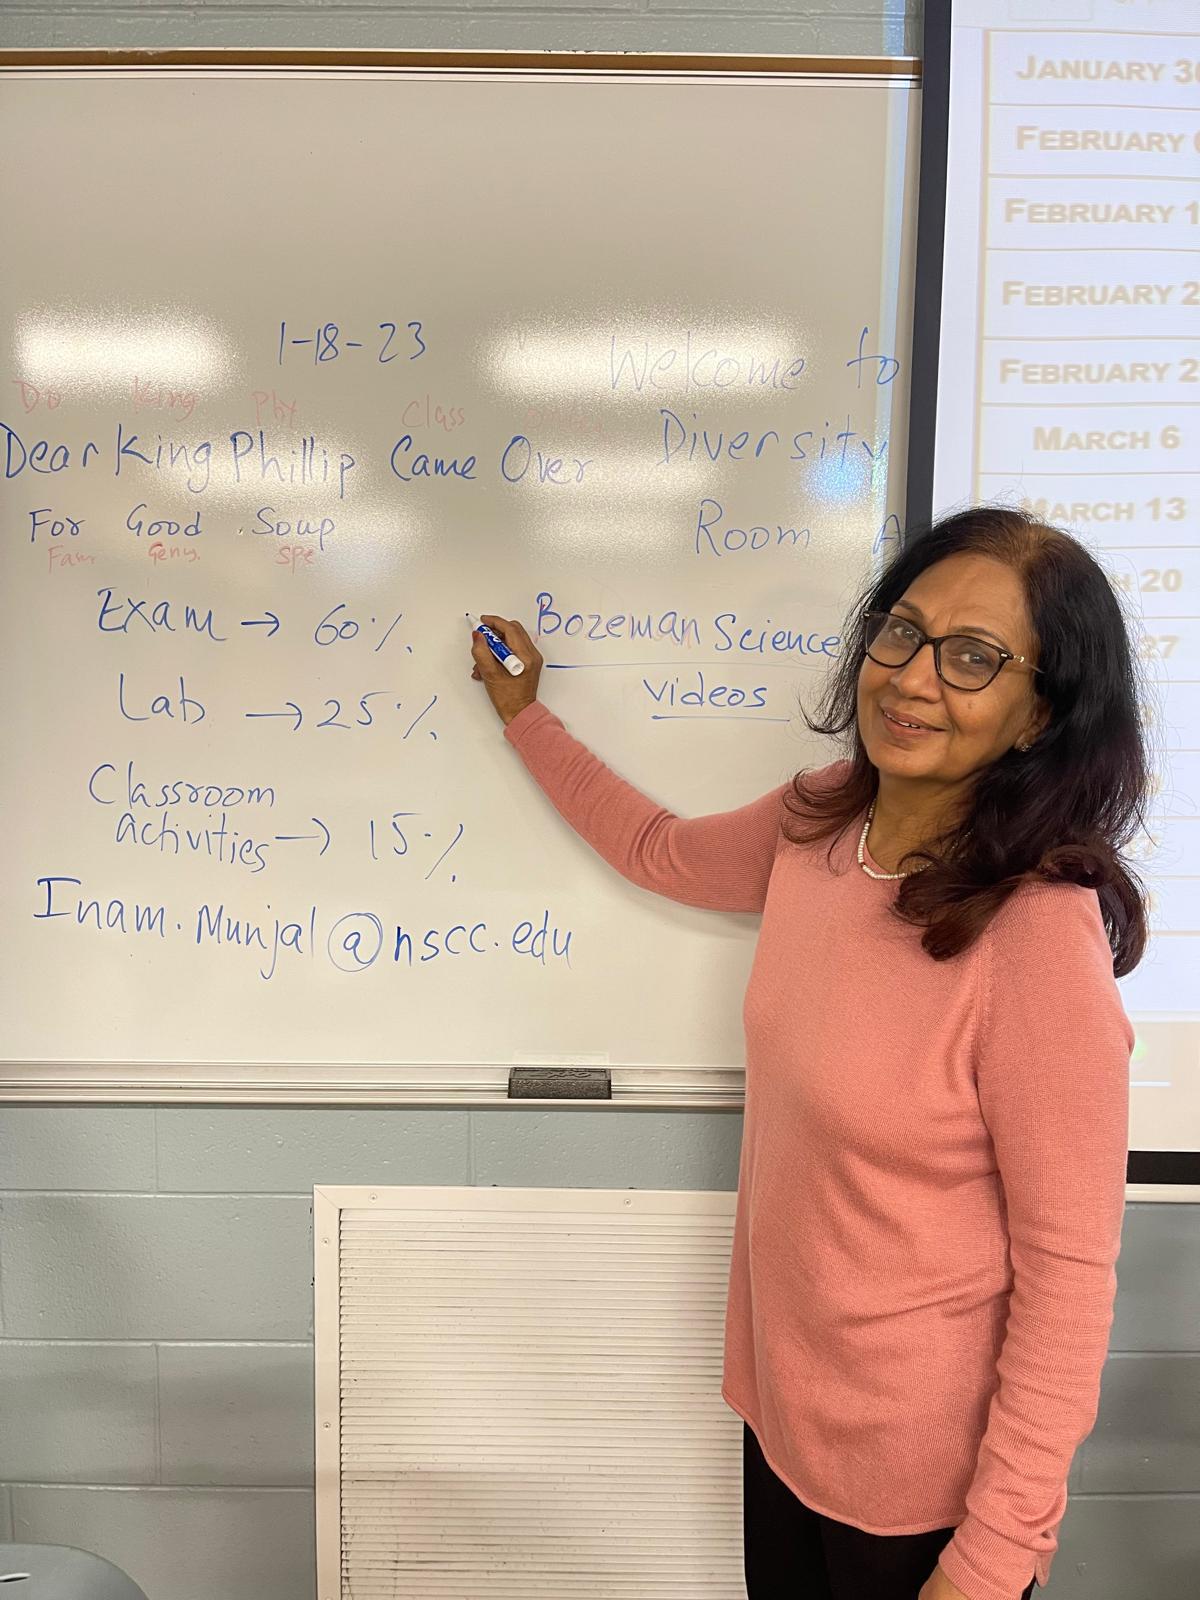 1-18-23
Do King Phy Class
Dear King Phillip Came Over
For Good Soup
Fam Genu. Spe
Exam → 60%.
Lab → 25%.
Classroom
activities → 15%.
Inam.Munjal@nscc.edu
Welcome to
Diversity
Room A
Bozeman Science
videos
JANUARY 30
FEBRUARY
FEBRUARY 1
FEBRUARY 2
FEBRUARY 2
MARCH 6
MARCH 13
20
27